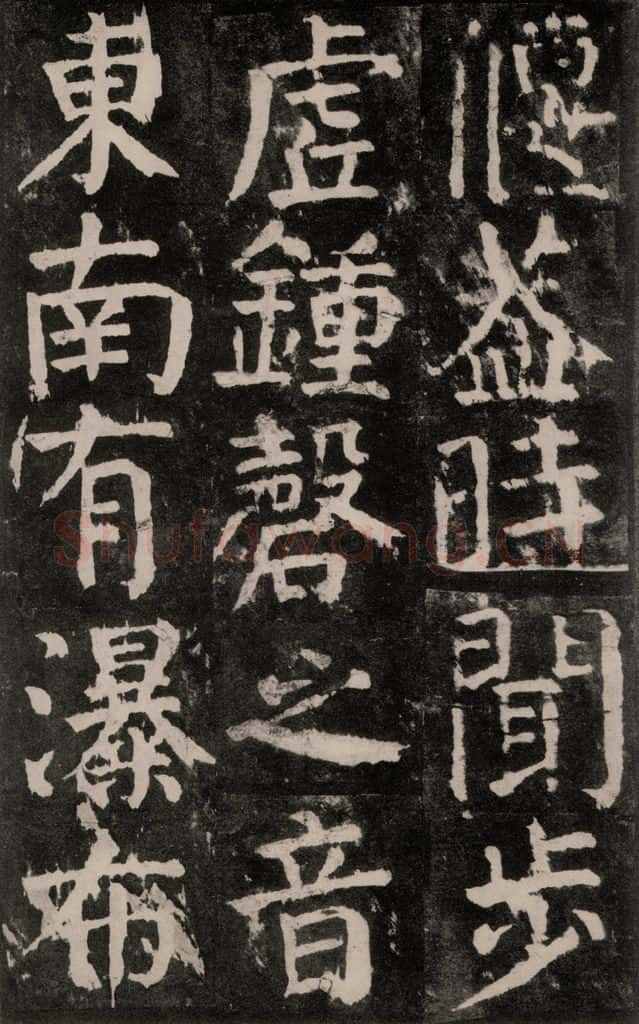 偃蓋時聞步
虛鍾磬之音
東南有瀑布
Shufawang.CN